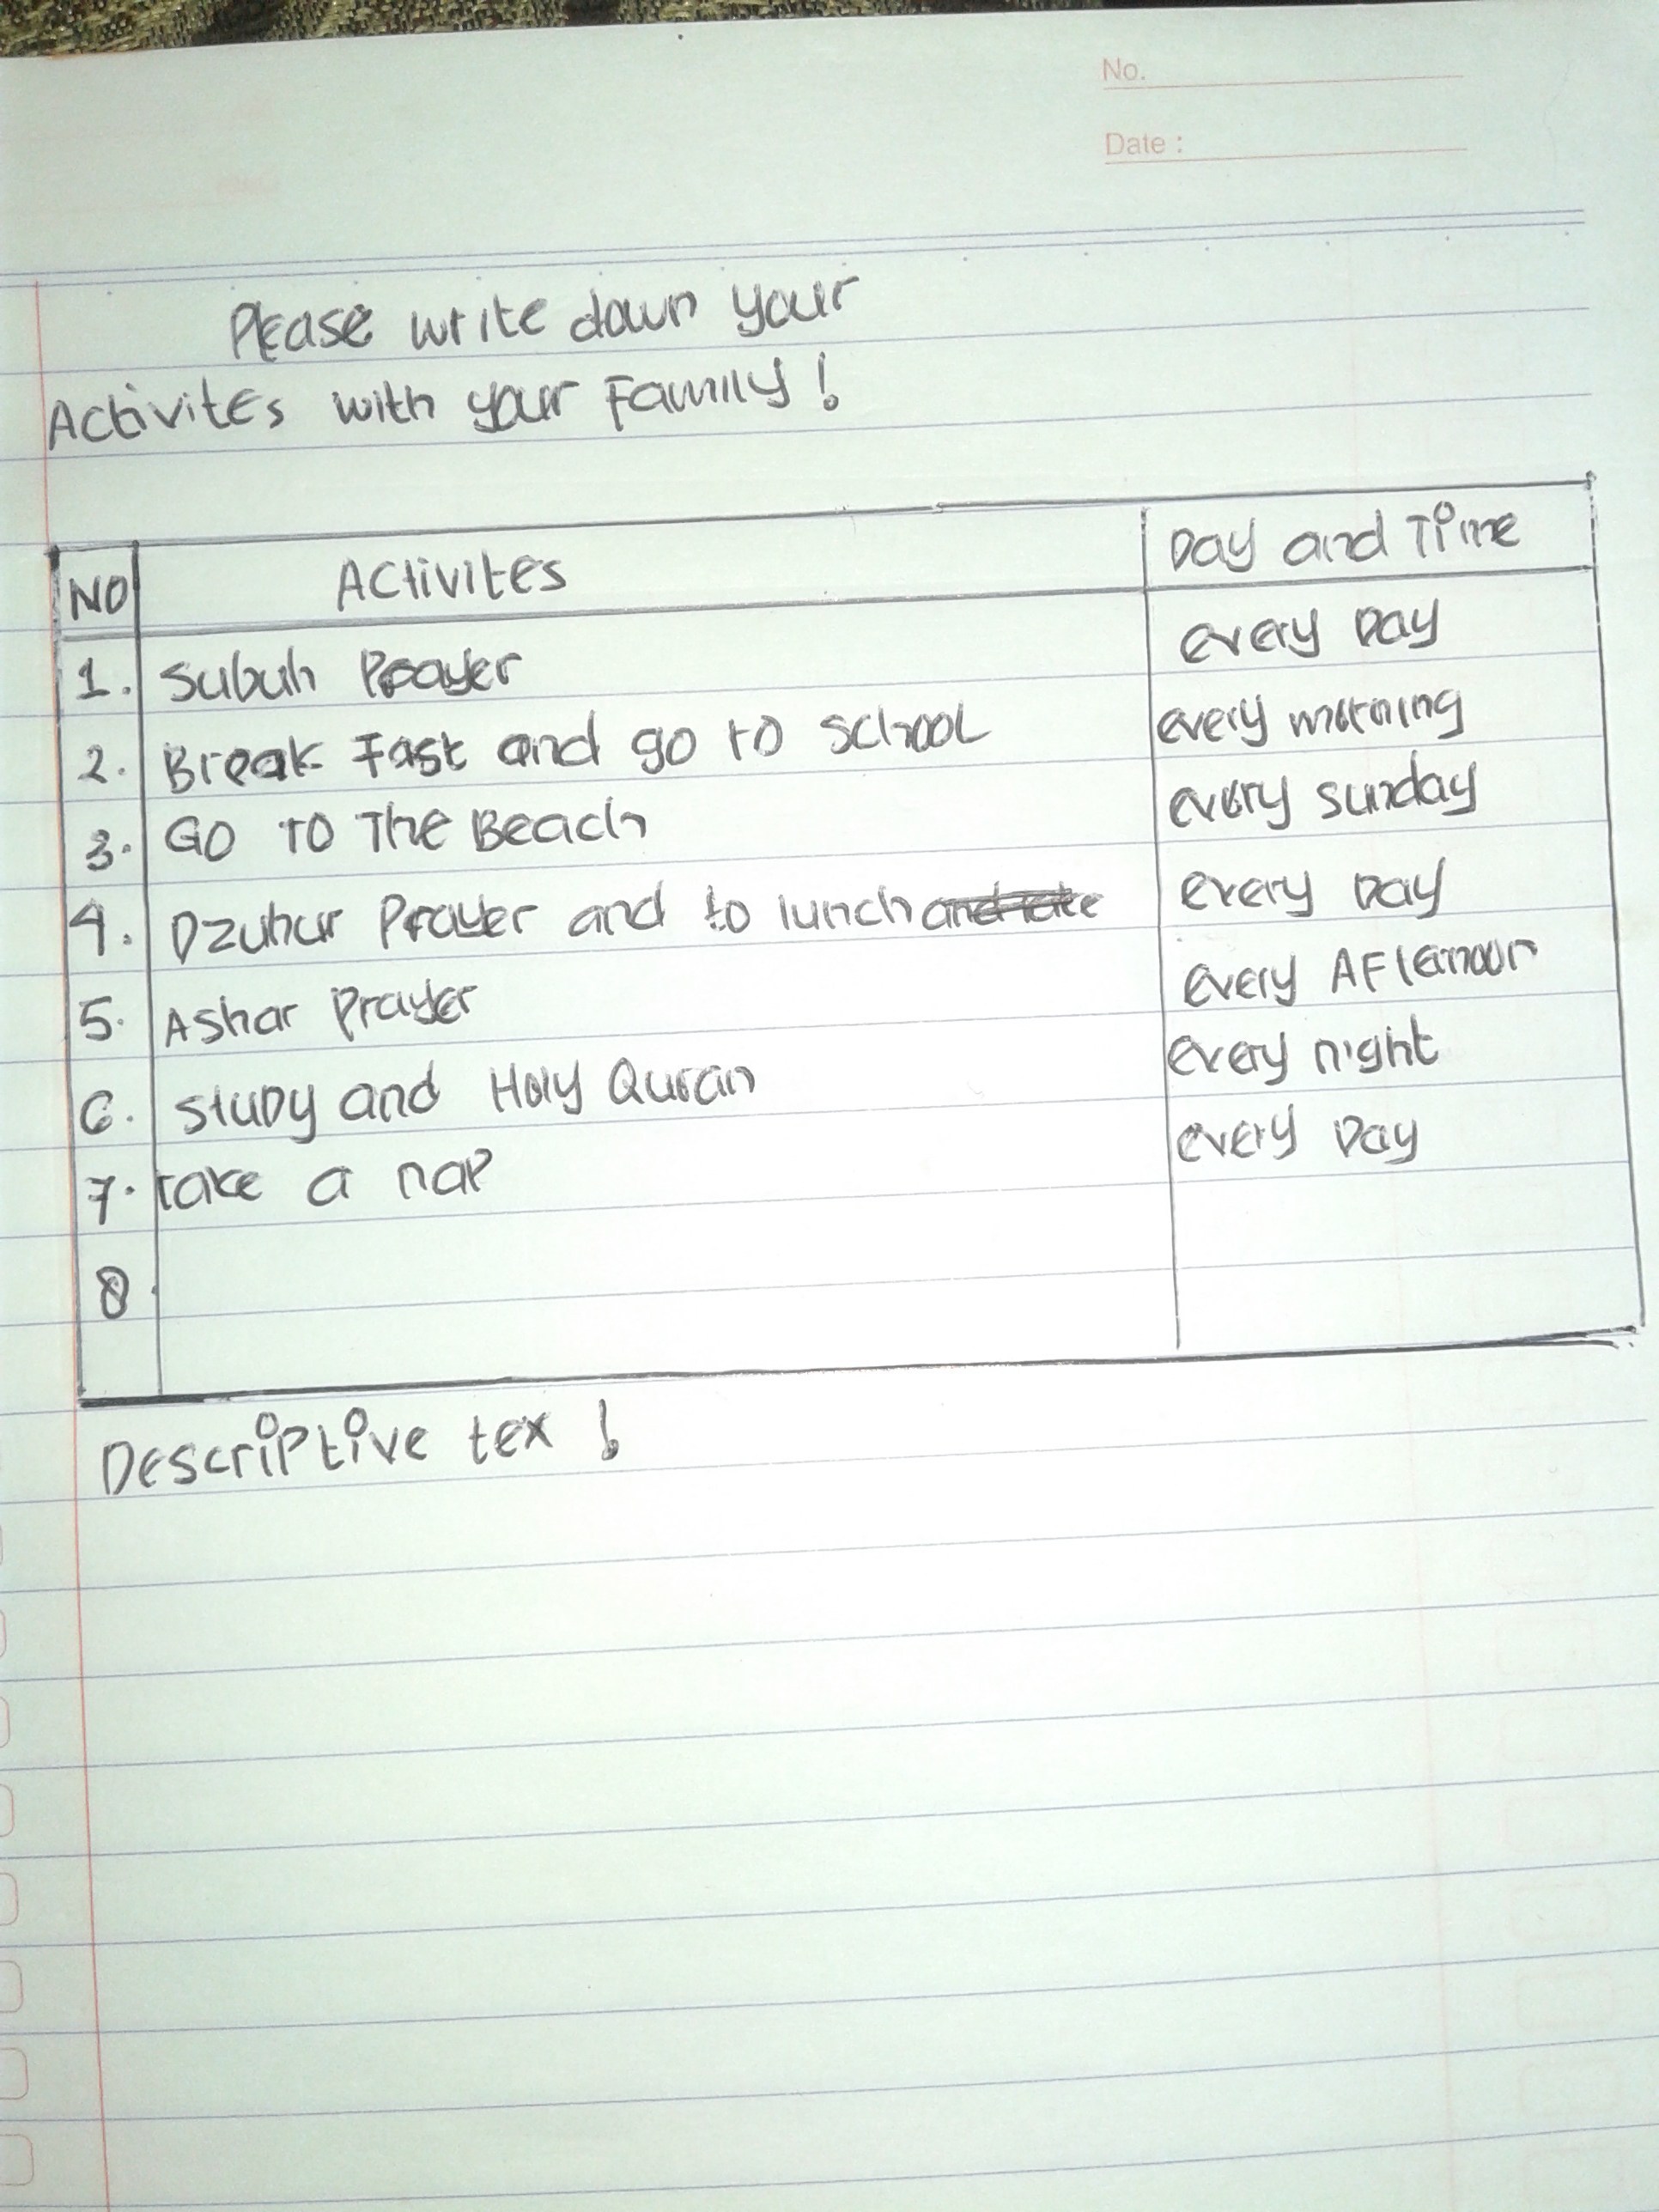 No.
Date :
Please write down your
Activites with your Family !
NO Activites Day and Time
1. Subuh Prayer every Day
2. Break Fast and go to school every morning
3. Go To The Beach every sunday
4. Dzuhur Prayer and to lunch every Day
5. Ashar Prayer every AFternoon
6. study and Holy Quran every night
7. take a nap every Day
8.
Descriptive tex !